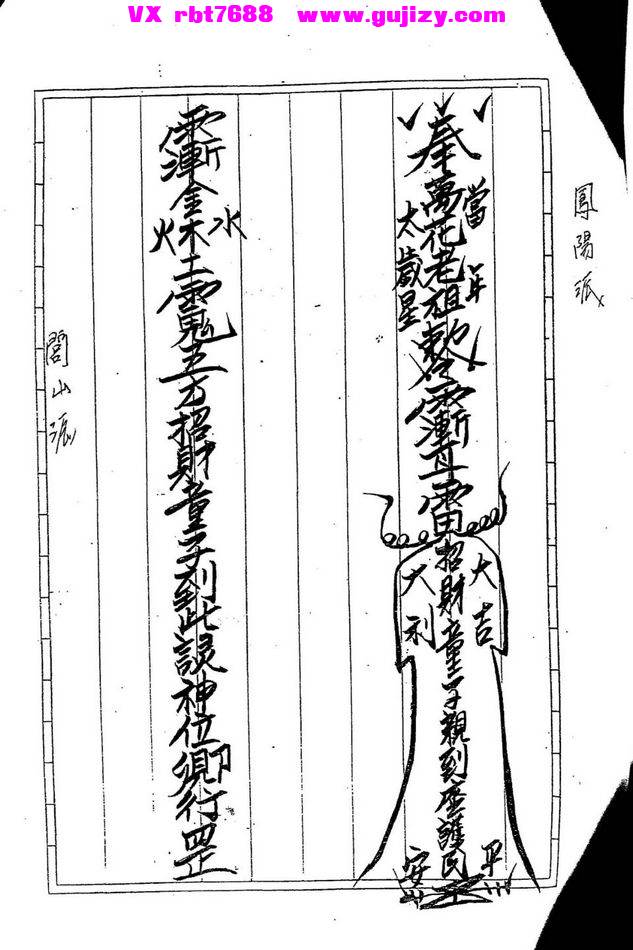 VX rbt7688 www.gujizy.com
鳳陽派
奉萬花老祖敕令
當年
太歲星
招財童子親到座護民
大吉
大利
平
安
金木土
水
火
五方招財童子到此設神位卿行罡
閭山派